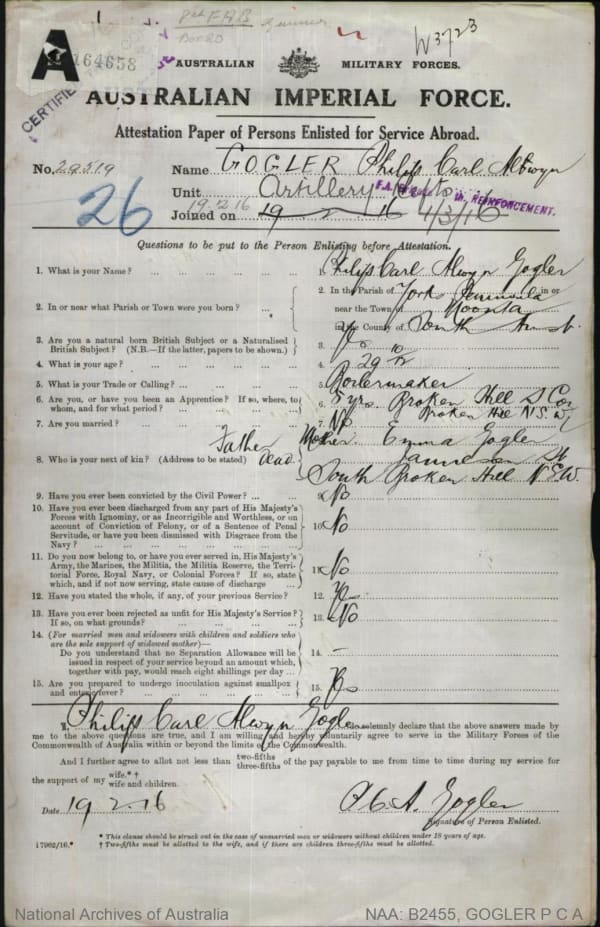 W3723
A
164658
CERTIFIE
AUSTRALIAN MILITARY FORCES.
AUSTRALIAN IMPERIAL FORCE.
Attestation Paper of Persons Enlisted for Service Abroad.
No. 29519 Name GOGLER Philip Carl Alwyn
Unit Artillery REINFORCEMENT.
26
19 2 16
Joined on 19 16 1/3/16
Questions to be put to the Person Enlisting before Attestation.
1. What is your Name? ... 1. Philip Carl Alwyn Gogler
2. In or near what Parish or Town were you born? ... 2. In the Parish of Yorks Peninsula in or
near the Town of Moonta
in the County of South Aust.
3. Are you a natural born British Subject or a Naturalised British Subject? (N.B.—If the latter, papers to be shown.) 3. Yes
4. What is your age? ... 4. 29 10/12
5. What is your Trade or Calling? ... 5. Boilermaker
6. Are you, or have you been an Apprentice? If so, where, to whom, and for what period? ... 6. 5 yrs. Broken Hill S Coy
Broken Hill N.S.W.
7. Are you married? ... 7. No
8. Who is your next of kin? (Address to be stated) Father dead. Mother. Emma Gogler
St
South Broken Hill N.S.W.
9. Have you ever been convicted by the Civil Power? ... 9. No
10. Have you ever been discharged from any part of His Majesty's Forces with Ignominy, or as Incorrigible and Worthless, or on account of Conviction of Felony, or of a Sentence of Penal Servitude, or have you been dismissed with Disgrace from the Navy? ... 10. No
11. Do you now belong to, or have you ever served in, His Majesty's Army, the Marines, the Militia, the Militia Reserve, the Territorial Force, Royal Navy, or Colonial Forces? If so, state which, and if not now serving, state cause of discharge ... 11. No
12. Have you stated the whole, if any, of your previous Service? 12. Yes
13. Have you ever been rejected as unfit for His Majesty's Service? If so, on what grounds? ... 13. No
14. (For married men and widowers with children and soldiers who are the sole support of widowed mother)—
Do you understand that no Separation Allowance will be issued in respect of your service beyond an amount which, together with pay, would reach eight shillings per day ... 14. -
15. Are you prepared to undergo inoculation against smallpox and enteric fever? ... 15. Yes
I, Philip Carl Alwyn Gogler do solemnly declare that the above answers made by
me to the above questions are true, and I am willing and hereby voluntarily agree to serve in the Military Forces of the
Commonwealth of Australia within or beyond the limits of the Commonwealth.
And I further agree to allot not less than two-fifths three-fifths of the pay payable to me from time to time during my service for
the support of my wife.* † wife and children.
Date 19 2.16 P C A. Gogler
Signature of Person Enlisted.
* This clause should be struck out in the case of unmarried men or widowers without children under 18 years of age.
† Two-fifths must be allotted to the wife, and if there are children three-fifths must be allotted.
National Archives of Australia NAA: B2455, GOGLER P C A